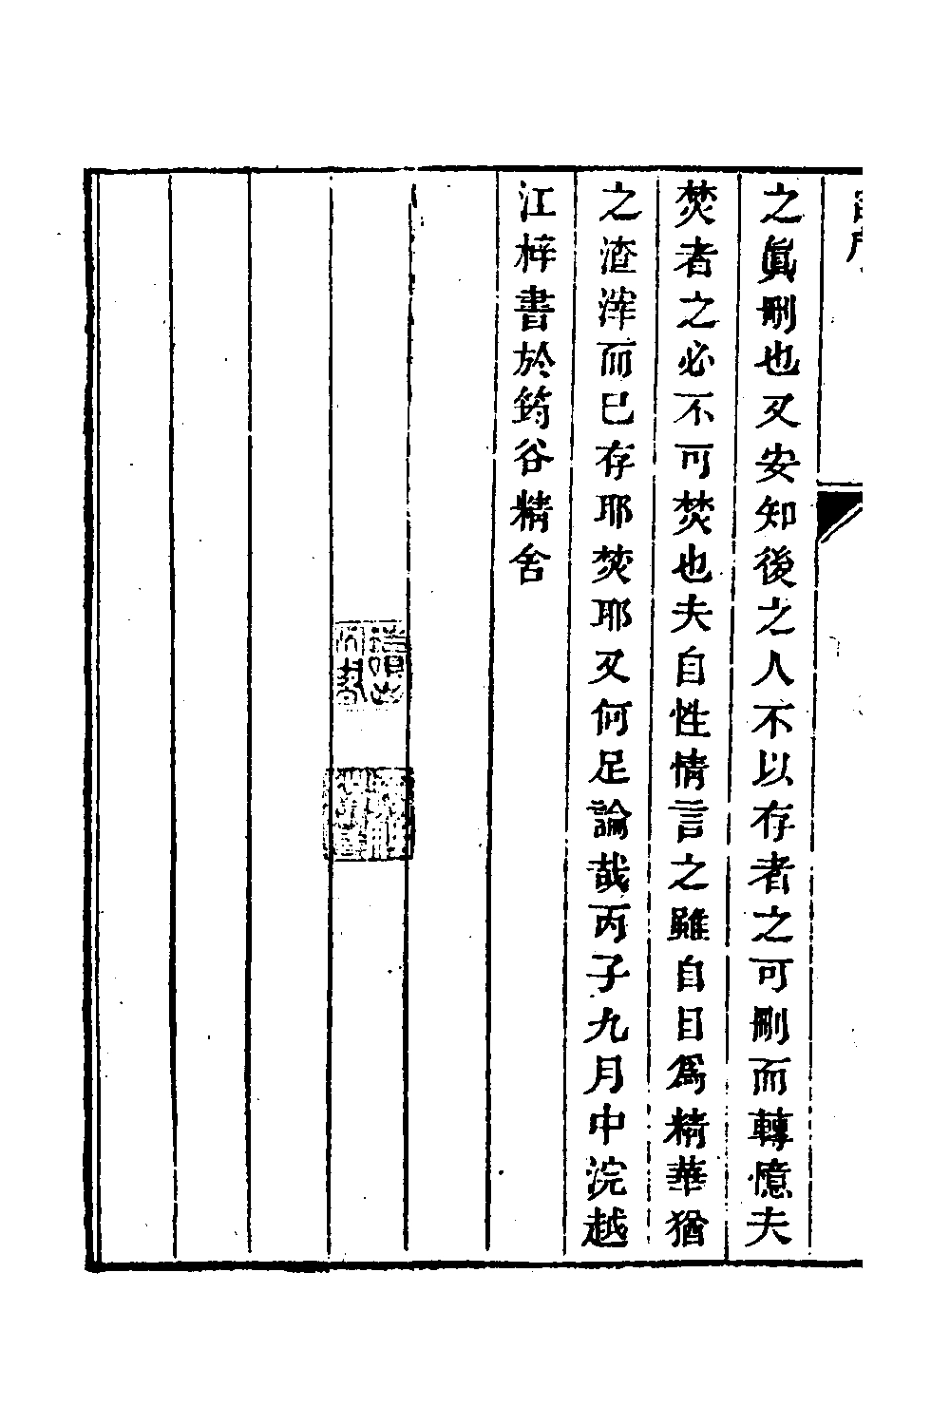 之眞刪也又安知後之人不以存者之可刪而轉憶夫
焚者之必不可焚也夫自性情言之雖自目爲精華猶
之渣滓而已存耶焚耶又何足論哉丙子九月中浣越
江梓書於筠谷精舍